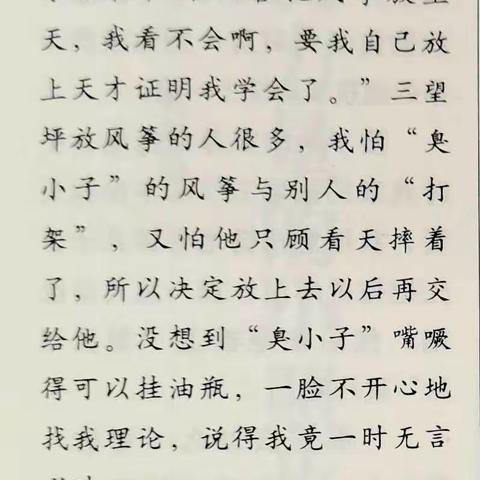 天，我看不会啊，要我自己放
上天才证明我学会了。”三望
坪放风筝的人很多，我怕“臭
小子”的风筝与别人的“打
架”，又怕他只顾看天摔着
了，所以决定放上去以后再交
给他。没想到“臭小子”嘴噘
得可以挂油瓶，一脸不开心地
找我理论，说得我竟一时无言